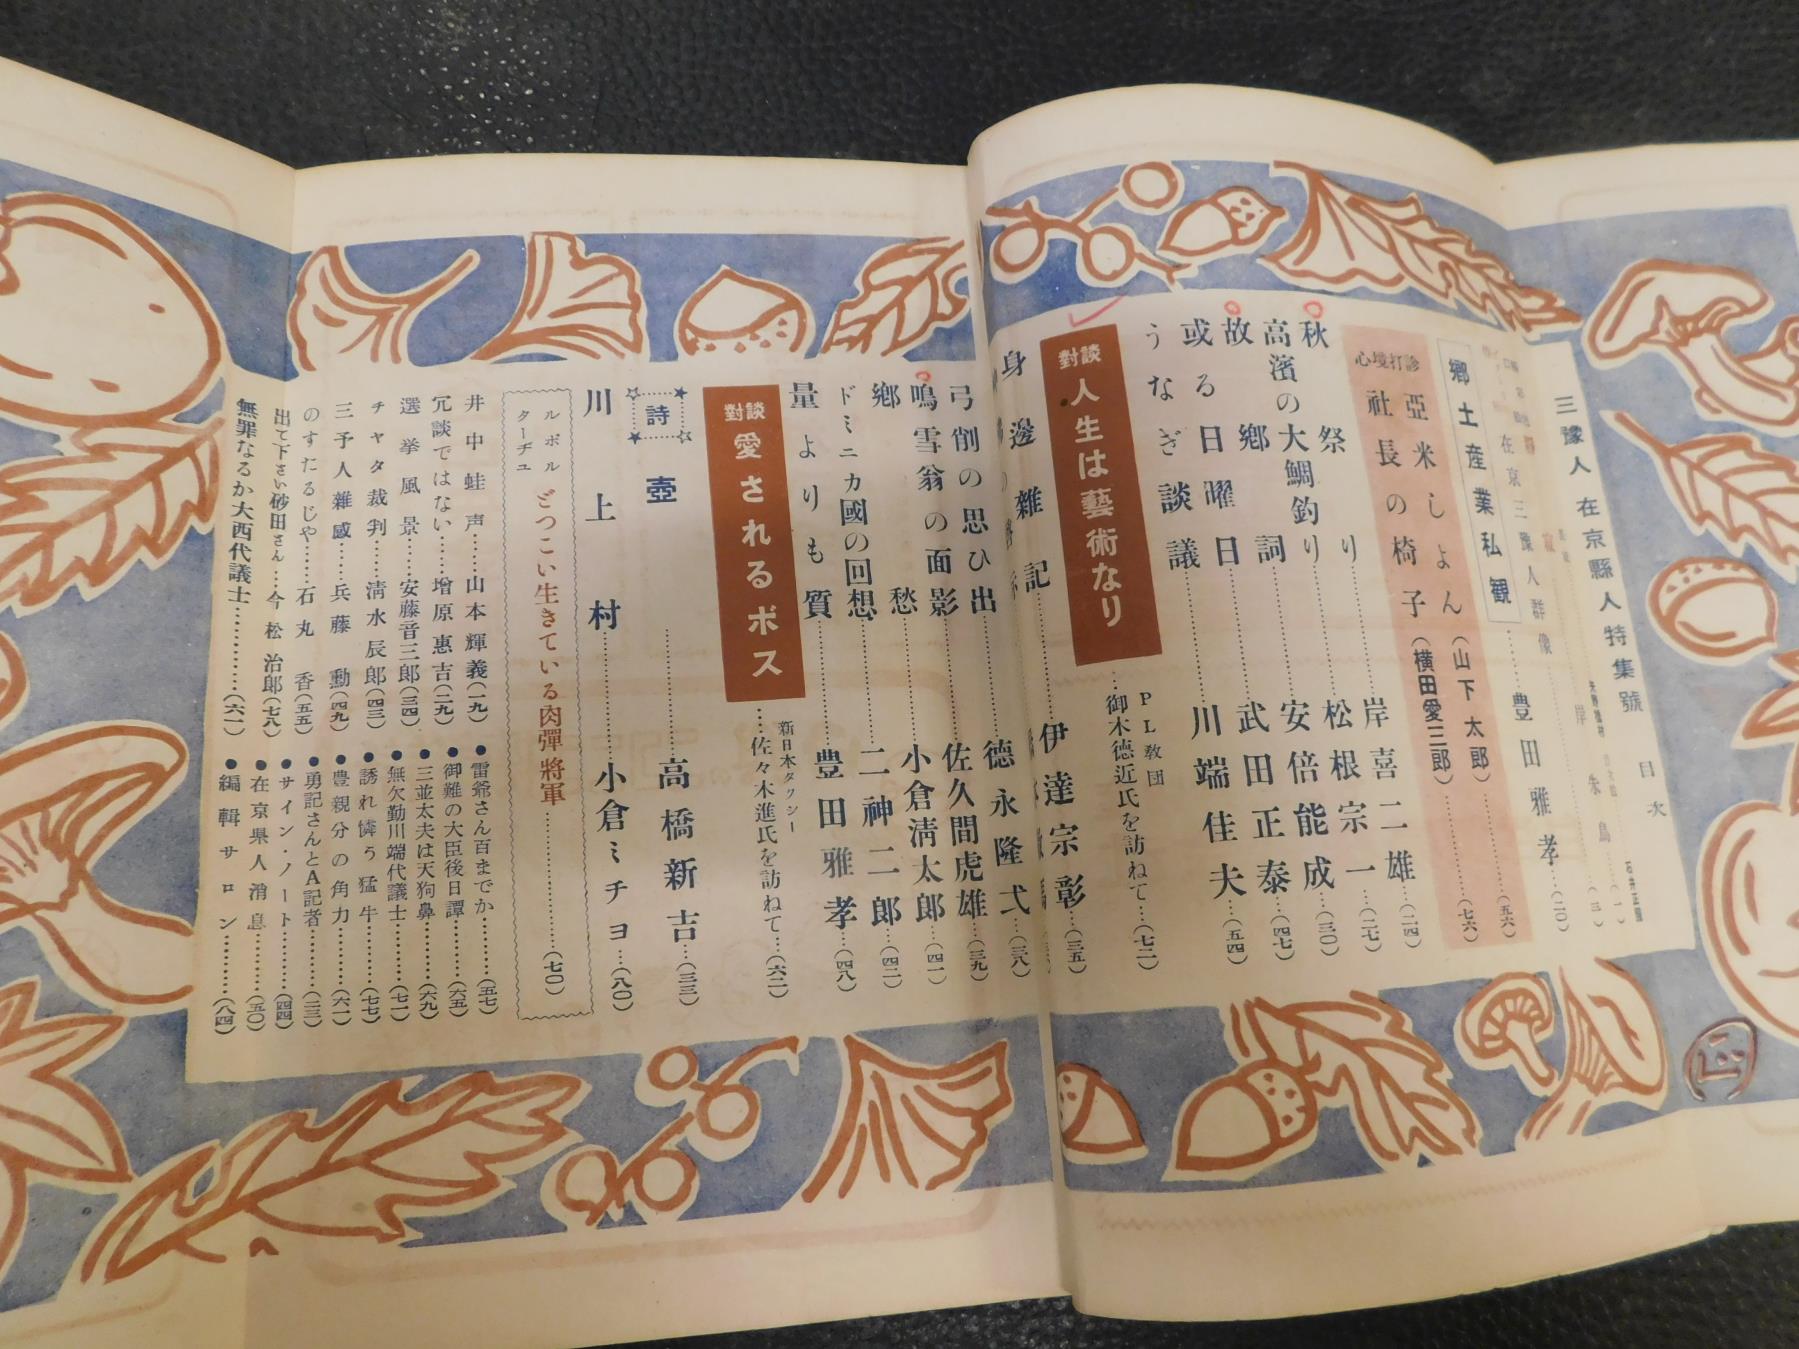 三豫人 在京縣人特集號 目次
在京三豫人群像
郷土産業私観 豊田雅孝…(二〇)
心境打診
亞米しよん(山下太郎)…(五六)
社長の椅子(横田愛三郎)…(七六)
秋祭り…岸喜二雄…(二四)
高濱の大鯛釣り…松根宗一…(二七)
故郷…安倍能成…(三〇)
或る日曜日…武田正泰…(四七)
うなぎ談議…川端佳夫…(五四)
對談 人生は藝術なり PL教団…御木徳近氏を訪ねて…(七二)
身邊雜記…伊達宗彰…(三五)
弓削の思ひ出…德永隆弌…(三八)
鳴雪翁の面影…佐久間虎雄…(三九)
郷愁…小倉淸太郎…(四一)
ドミニカ國の回想…二神二郎…(四二)
量よりも質…豊田雅孝…(四八)
對談 愛されるボス 新日本タクシー…佐々木進氏を訪ねて…(六二)
詩
壺…高橋新吉…(三三)
川上村…小倉ミチヨ…(八〇)
ルポルターヂユ どつこい生きている肉彈將軍…(七〇)
井中蛙声…山本輝義(一九)
冗談ではない…増原惠吉(二九)
選挙風景…安藤音三郎(三四)
チヤタ裁判…淸水辰郎(四三)
三予人雜感…兵藤 動(四九)
のすたるじや…石丸 香(五五)
出て下さい砂田さん…今松治郎(七八)
無罪なるか大西代議士…(六一)
●雷爺さん百までか…(五七)
●御難の大臣後日譚…(六五)
●三並太夫は天狗鼻…(六九)
●無欠勤川端代議士…(七一)
●誘れ憐う猛牛…(七七)
●豊親分の角力…(六一)
●勇記さんとA記者…(二三)
●サイン・ノート…(四四)
●在京県人消息…(五〇)
●編輯サロン…(八四)